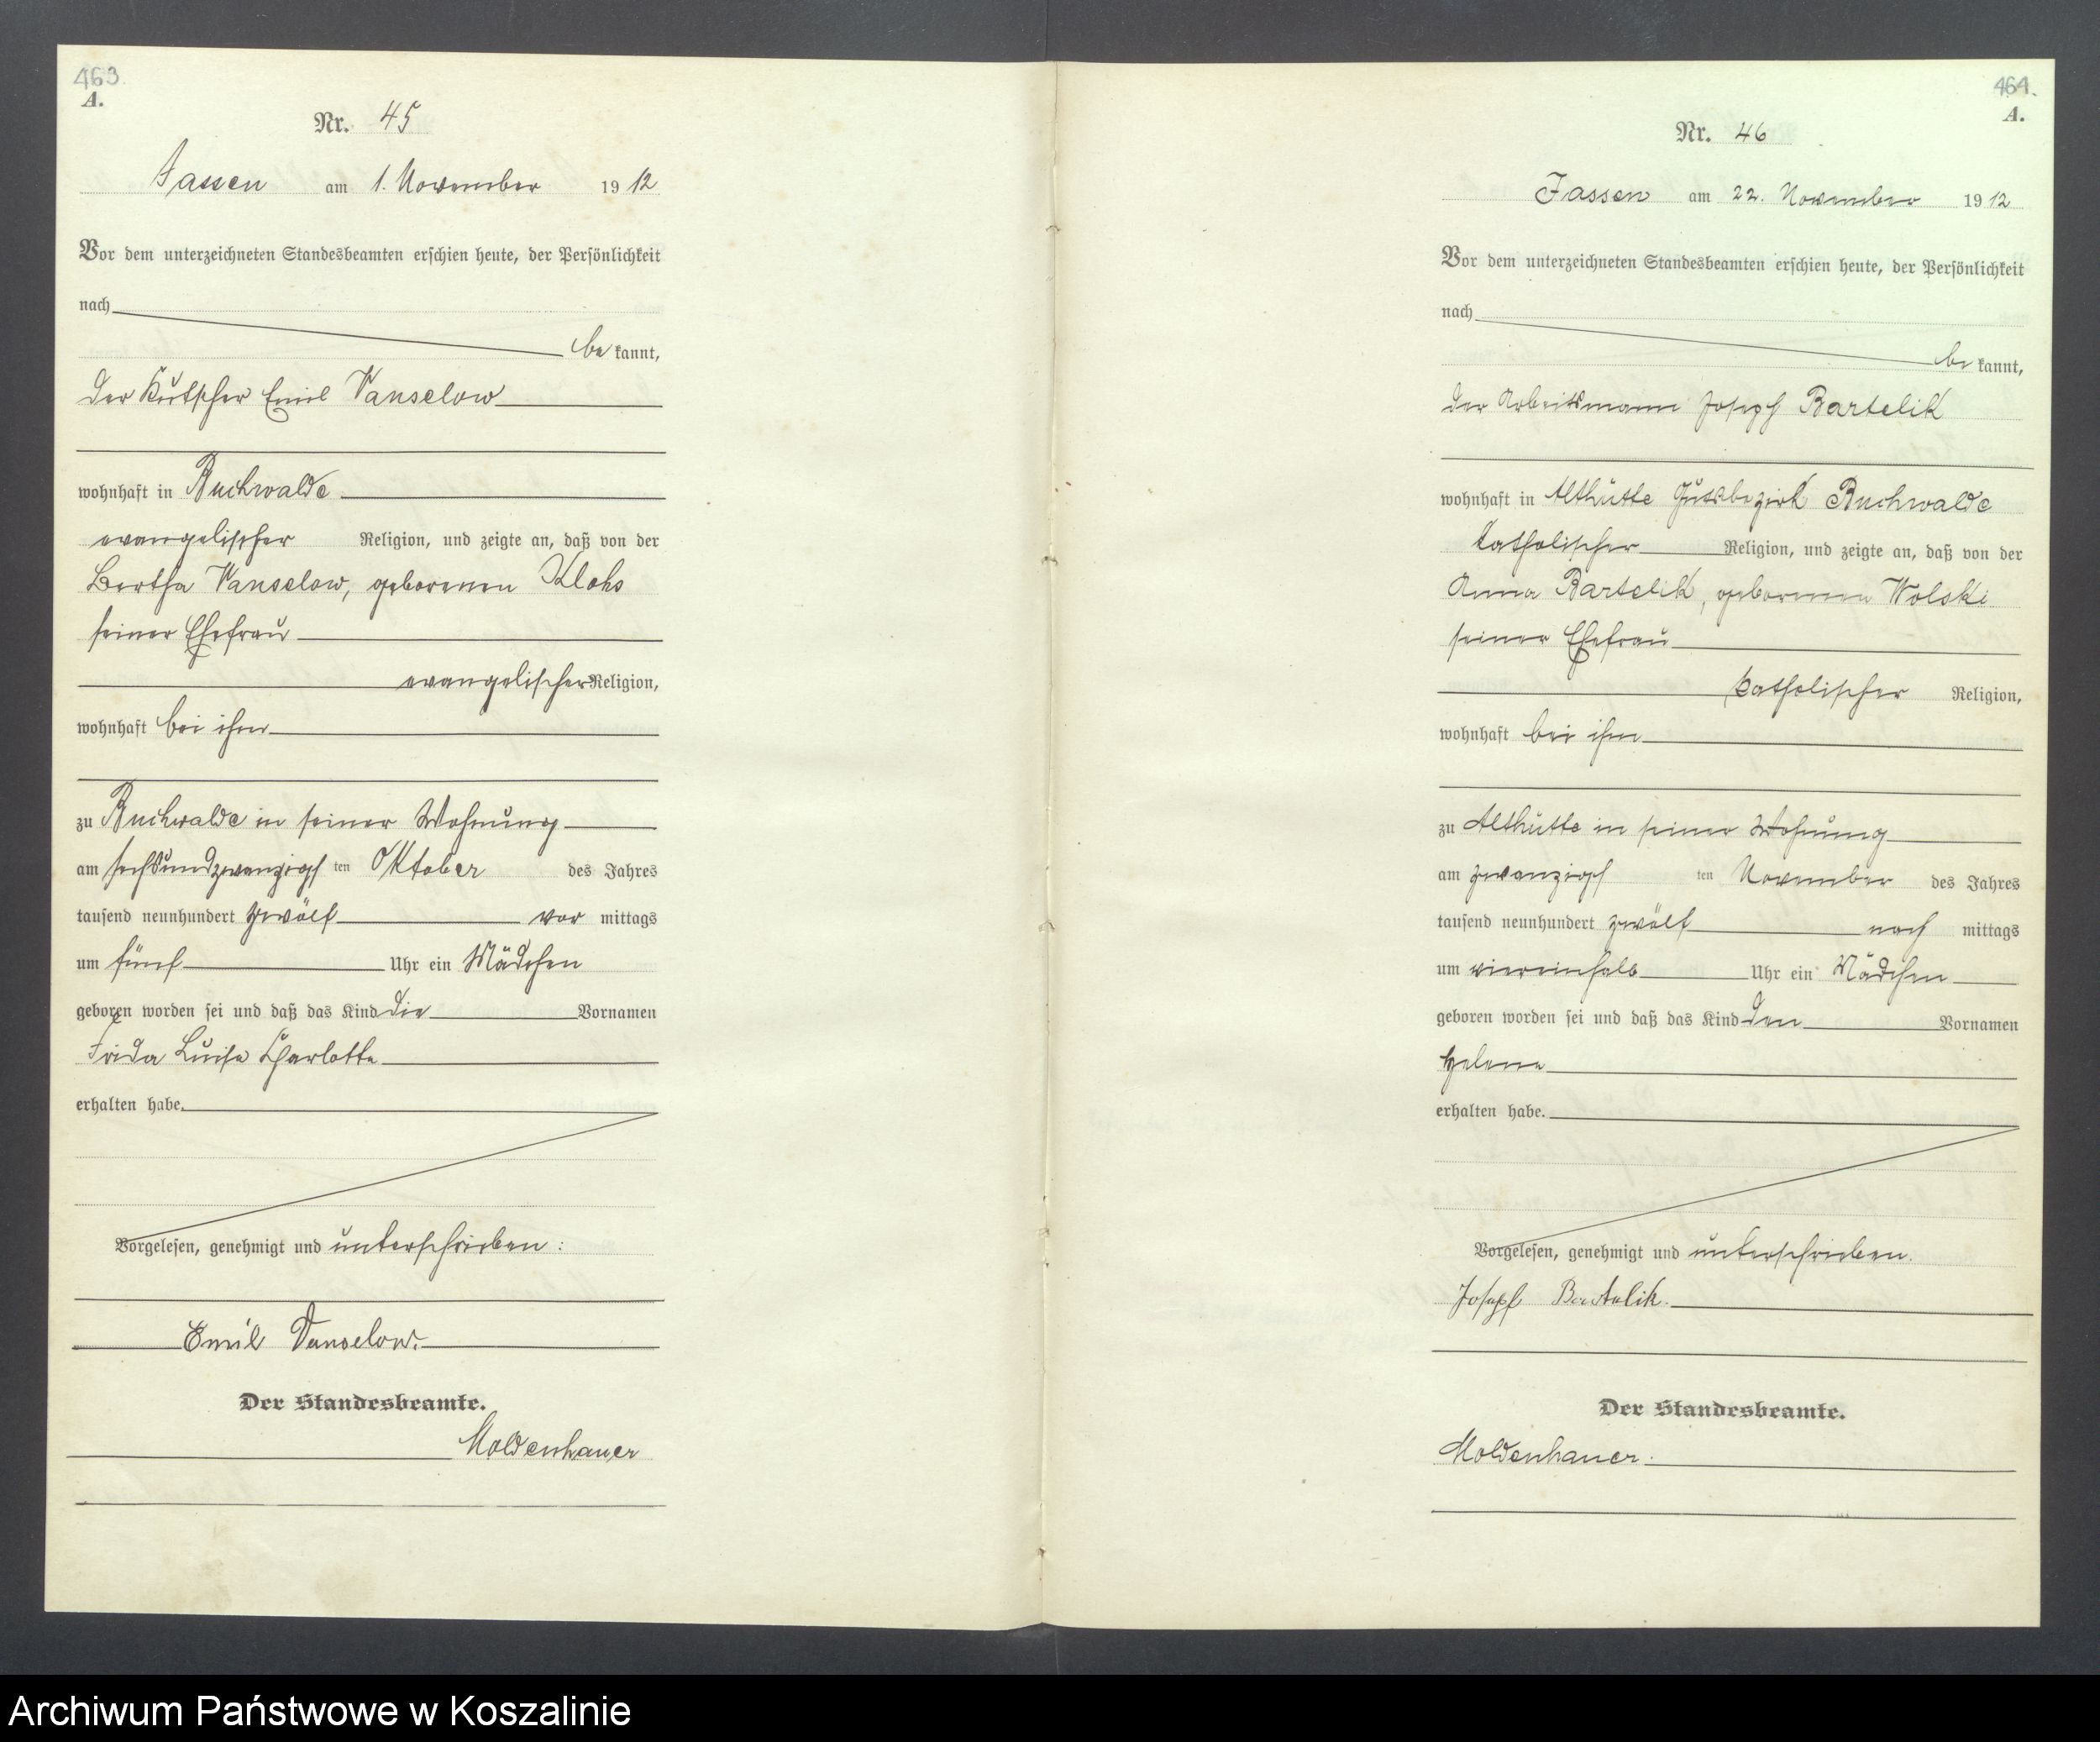 463.
A.
Nr. 45
Jassen am 1. November 1912
Vor dem unterzeichneten Standesbeamten erschien heute, der Persönlichkeit
nach
be kannt,
der Kutscher Emil Vanselow
wohnhaft in Buchwalde
evangelischer Religion, und zeigte an, daß von der
Bertha Vanselow, geborenen Klohs
seiner Ehefrau
evangelischer Religion,
wohnhaft bei ihm
zu Buchwalde in seiner Wohnung
am sechsundzwanzigs ten Oktober des Jahres
tausend neunhundert zwölf vor mittags
um fünf Uhr ein Mädchen
geboren worden sei und daß das Kind die Vornamen
Frida Luise Charlotte
erhalten habe.
Vorgelesen, genehmigt und unterschrieben:
Emil Vanselow.
Der Standesbeamte.
Moldenhauer
464.
A.
Nr. 46
Jassen am 22. November 1912
Vor dem unterzeichneten Standesbeamten erschien heute, der Persönlichkeit
nach
be kannt,
der Arbeitsmann Joseph Bartelik
wohnhaft in Althütte Gutsbezirk Buchwalde
katholischer Religion, und zeigte an, daß von der
Anna Bartelik, geborenen Wolski
seiner Ehefrau
katholischer Religion,
wohnhaft bei ihm
zu Althütte in seiner Wohnung
am zwanzigs ten November des Jahres
tausend neunhundert zwölf nach mittags
um viereinhalb Uhr ein Mädchen
geboren worden sei und daß das Kind den Vornamen
Helene
erhalten habe.
Vorgelesen, genehmigt und unterschrieben.
Joseph Bartelik.
Der Standesbeamte.
Moldenhauer.
Archiwum Państwowe w Koszalinie